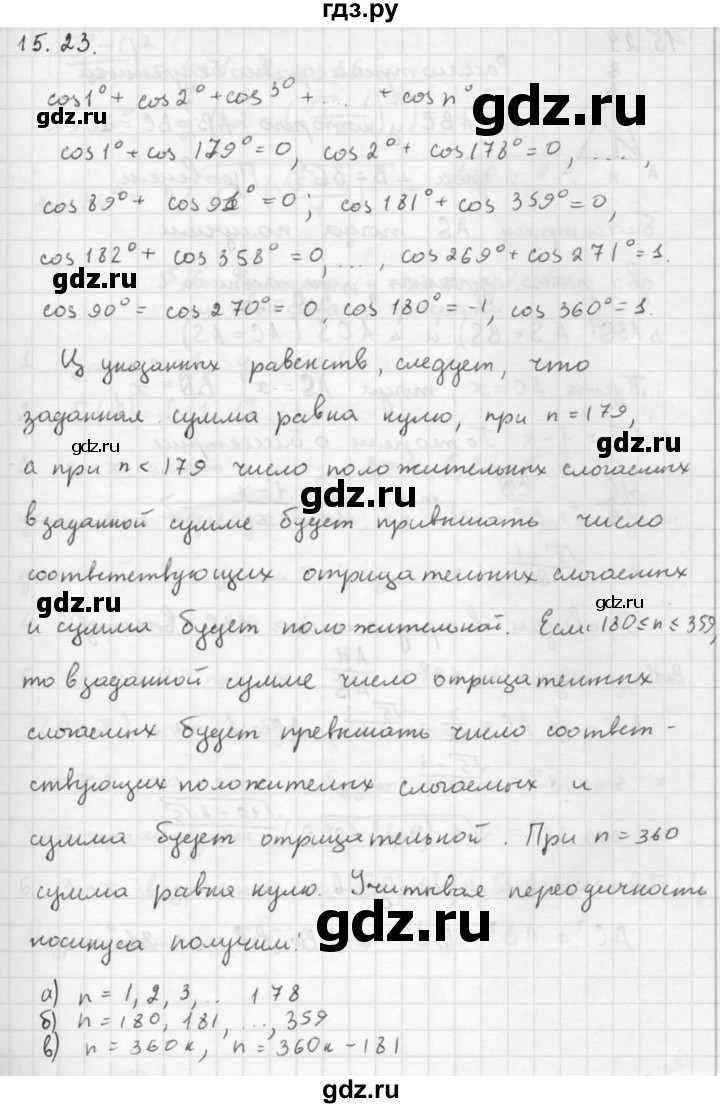 гдз.ру
15.23.
cos1° + cos2° + cos3° + ... + cosn°
cos1° + cos179° = 0, cos2° + cos178° = 0, ...,
cos89° + cos91° = 0; cos181° + cos359° = 0,
cos182° + cos358° = 0, ..., cos269° + cos271° = 1.
gdz.ru
cos90° = cos270° = 0, cos180° = -1, cos360° = 1.
Из указанных равенств, следует, что
заданная сумма равна нулю, при n = 179,
gdz.ru
gdz.ru
а при n < 179 число положительных слагаемых
gdz.ru
в заданной сумме будет привышать число
соответствующих отрицательных слагаемых
gdz.ru
gdz.ru
и сумма будет положительной. Если 180 ≤ n ≤ 359,
то в заданной сумме число отрицательных
слагаемых будет превышать число соответ-
ствующих положителных слагаемых и
gdz.ru
сумма будет отрицательной. При n = 360
сумма равна нулю. Учитывая переодичность
gdz.ru
косинуса получим:
а) n = 1, 2, 3, .. 178
б) n = 180, 181, ..., 359
в) n = 360к, n = 360к - 181
gdz.ru
gdz.ru